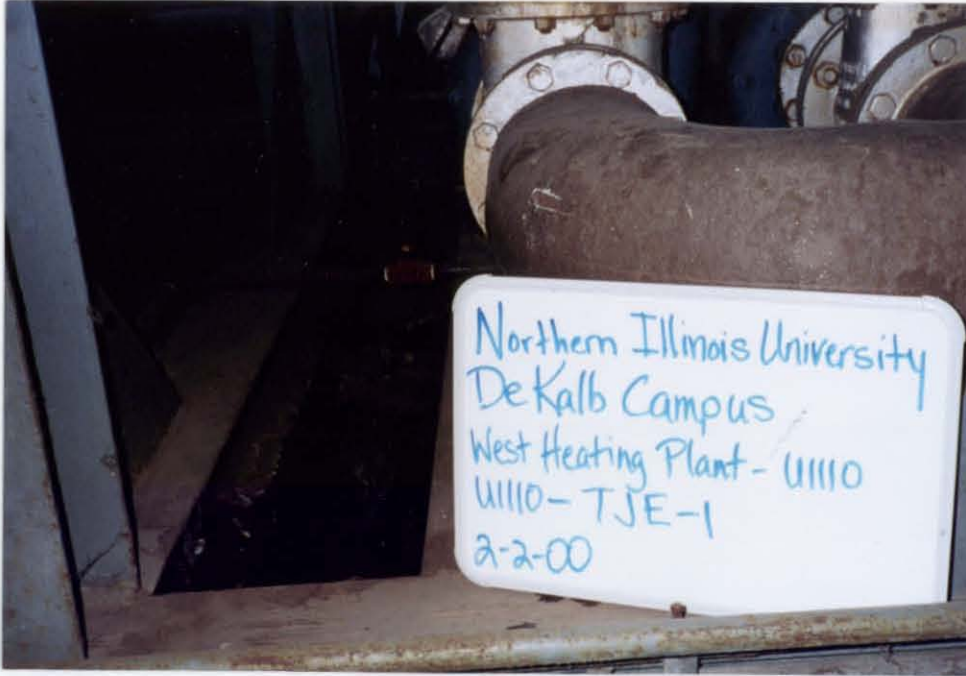 Northern Illinois University
DeKalb Campus
West Heating Plant - U1110
U1110 - TJE-1
2-2-00